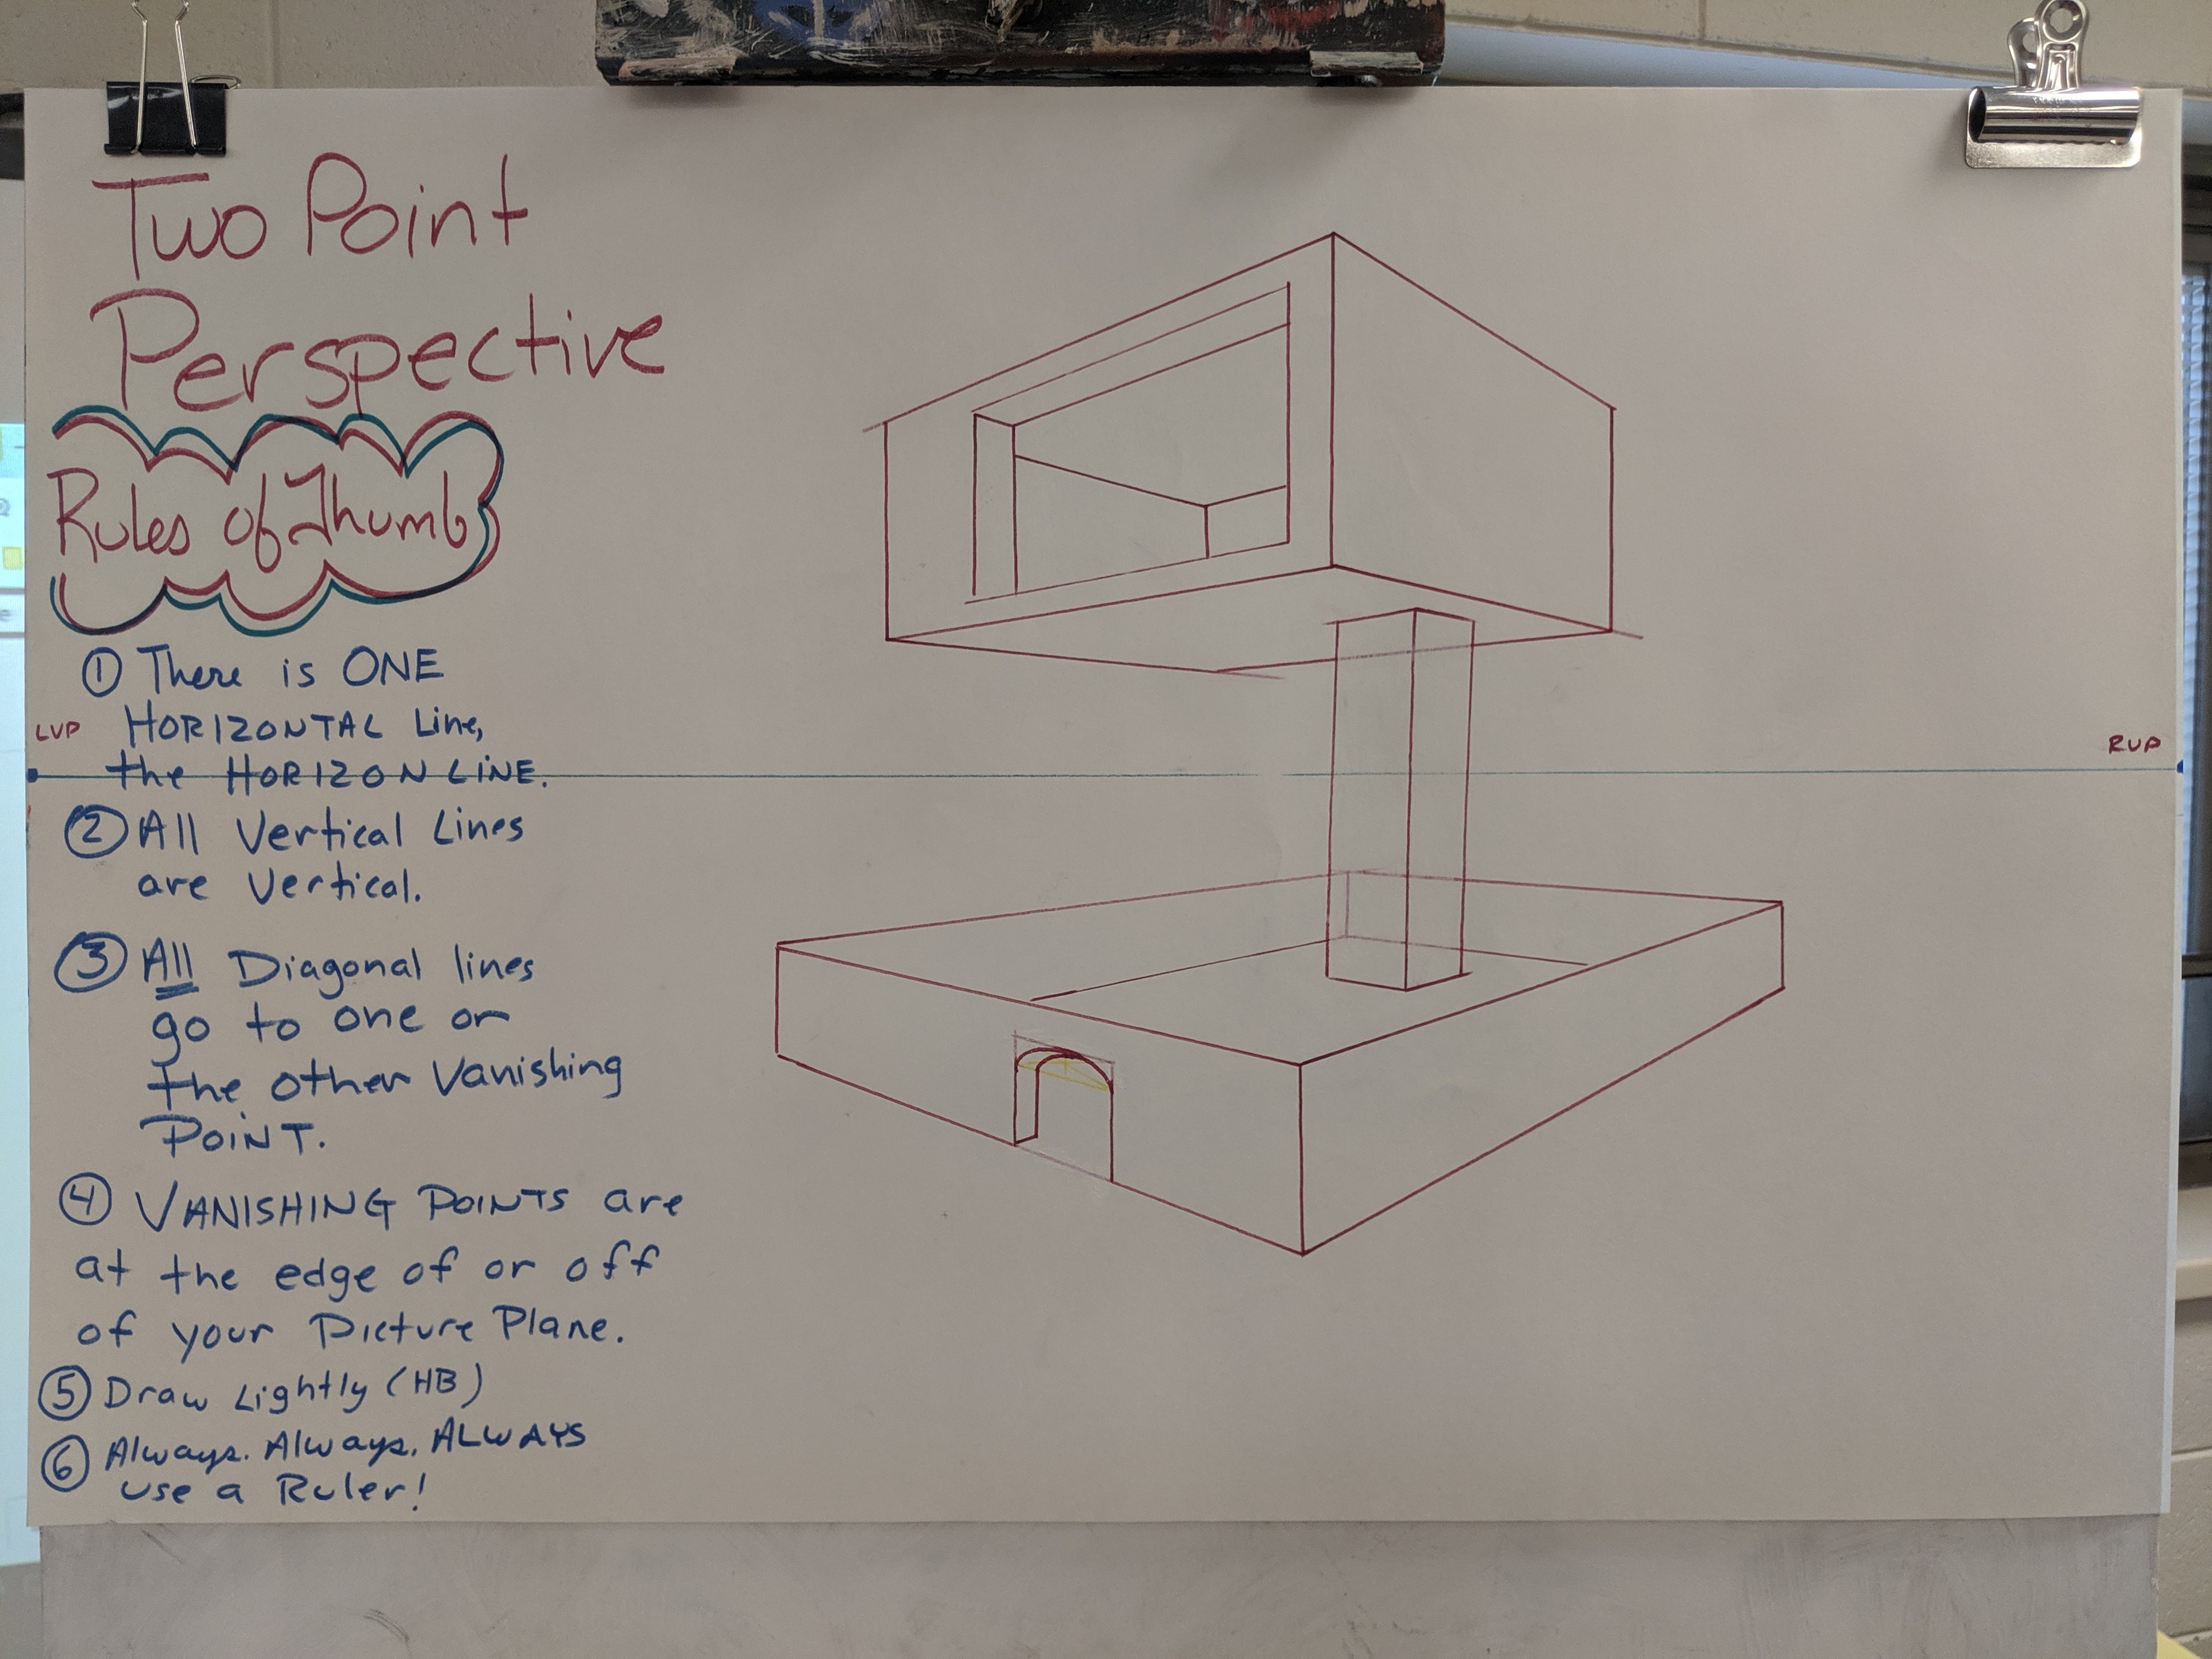 Two Point
Perspective
Rules of Thumb
① There is ONE
HORIZONTAL Line,
the HORIZON LINE.
LVP
RVP
② All Vertical Lines
are Vertical.
③ All Diagonal lines
go to one or
the other Vanishing
POINT.
④ VANISHING POINTS are
at the edge of or off
of your Picture Plane.
⑤ Draw Lightly (HB)
⑥ Always. Always. ALWAYS
use a Ruler!